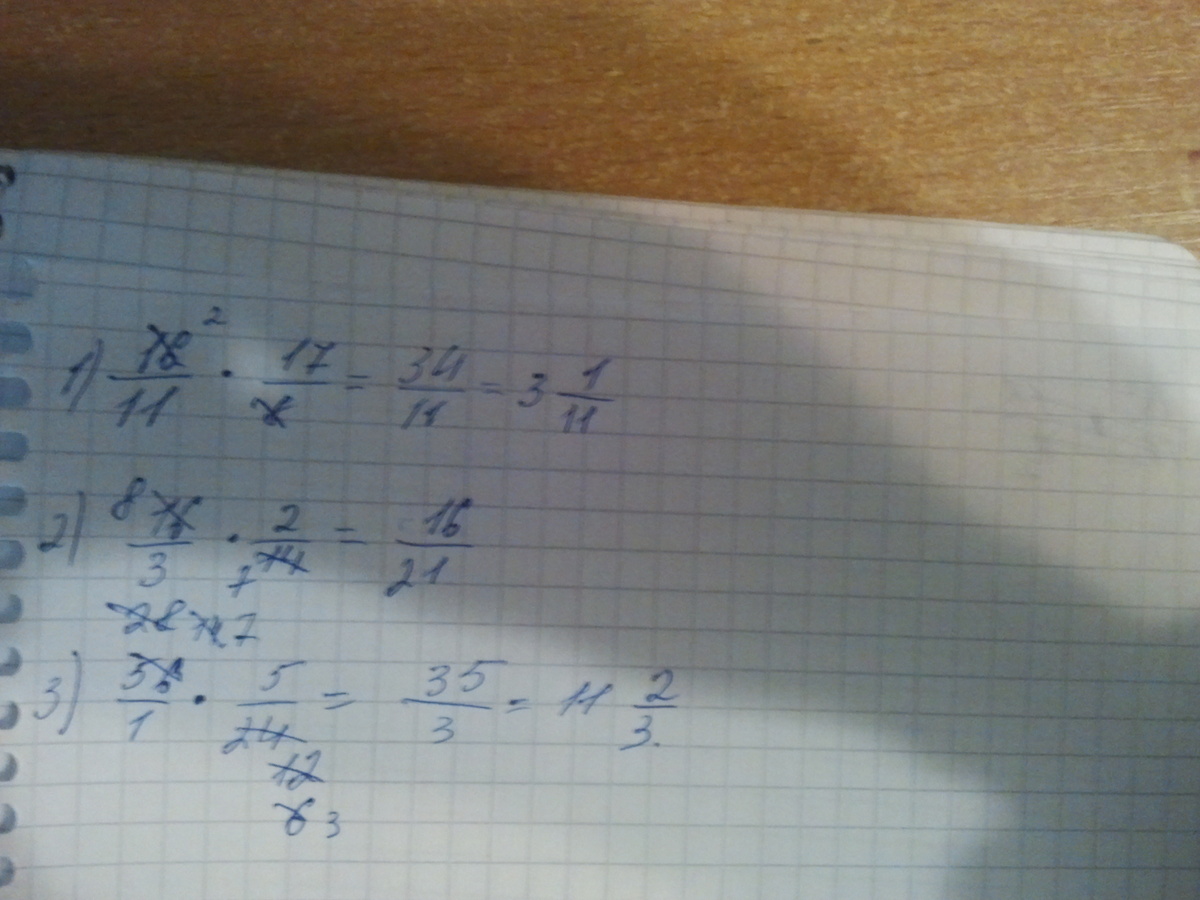 1) 12/11 2 · 17/6 = 34/11 = 3 1/11
2) 8 16/3 · 2/14 7 = 16/21
28 14 7
3) 56/1 · 5/24 = 35/3 = 11 2/3.
12
6 3